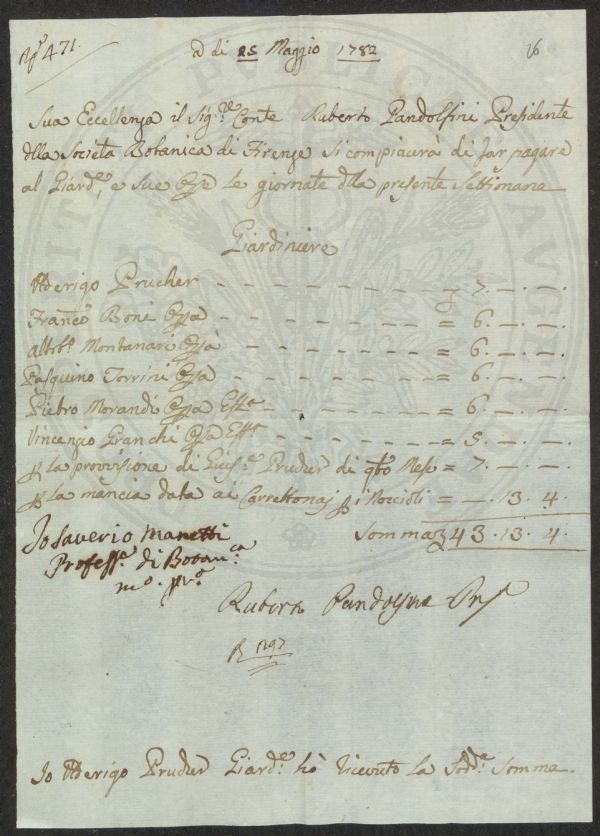 N.º 471.
26
a di 25 Maggio 1782
Sua Eccellenza il Sig.re Conte Ruberto Pandolfini Presidente
dlla Società Botanica di Firenze si compiacerà di far pagare
al Giard.e, e sue Opre le giornate dlla presente Settimana
Giardiniere
Uderigo Prucher - - - - - - - - 7. —. —.
Franc.º Boni Opra - - - - - - = 6. —. —.
Altob.º Montanari Opra - - - - - = 6. —. —.
Pasquino Torrini Opra - - - - - = 6. —. —.
Pietro Morandi Opra - - - - - = 6. —. —.
Vincenzio Granchi Opra - - - - - = 5. —. —.
P la provisione di Gius.e Prucher di qto Mese = 7. —. —.
P la mancia data ai Carrettonaj p i Noccioli = —. 13. 4.
Somma 43. 13. 4.
Io Saverio Manetti
Profess.e di Botan.ca
m.º pr.º
Ruberto Pandolfini Pres
Io Uderigo Prucher Giard.e hò ricevuto la Sod.a Somma.